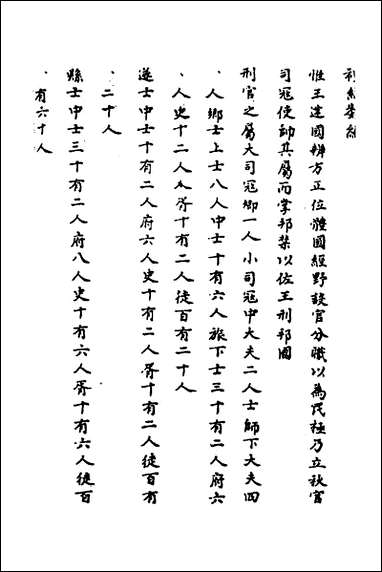 惟王建國辨方正位體國經野設官分職以為民極乃立秋官
司寇使帥其屬而掌邦禁以佐王刑邦國
刑官之屬大司寇卿一人小司寇中大夫二人士師下大夫四
人鄉士上士八人中士十有六人旅下士三十有二人府六
人史十二人胥十有二人徒百有二十人
遂士中士十有二人府六人史十有二人胥十有二人徒百有
二十人
縣士中士三十有二人府八人史十有六人胥十有六人徒百
有六十人